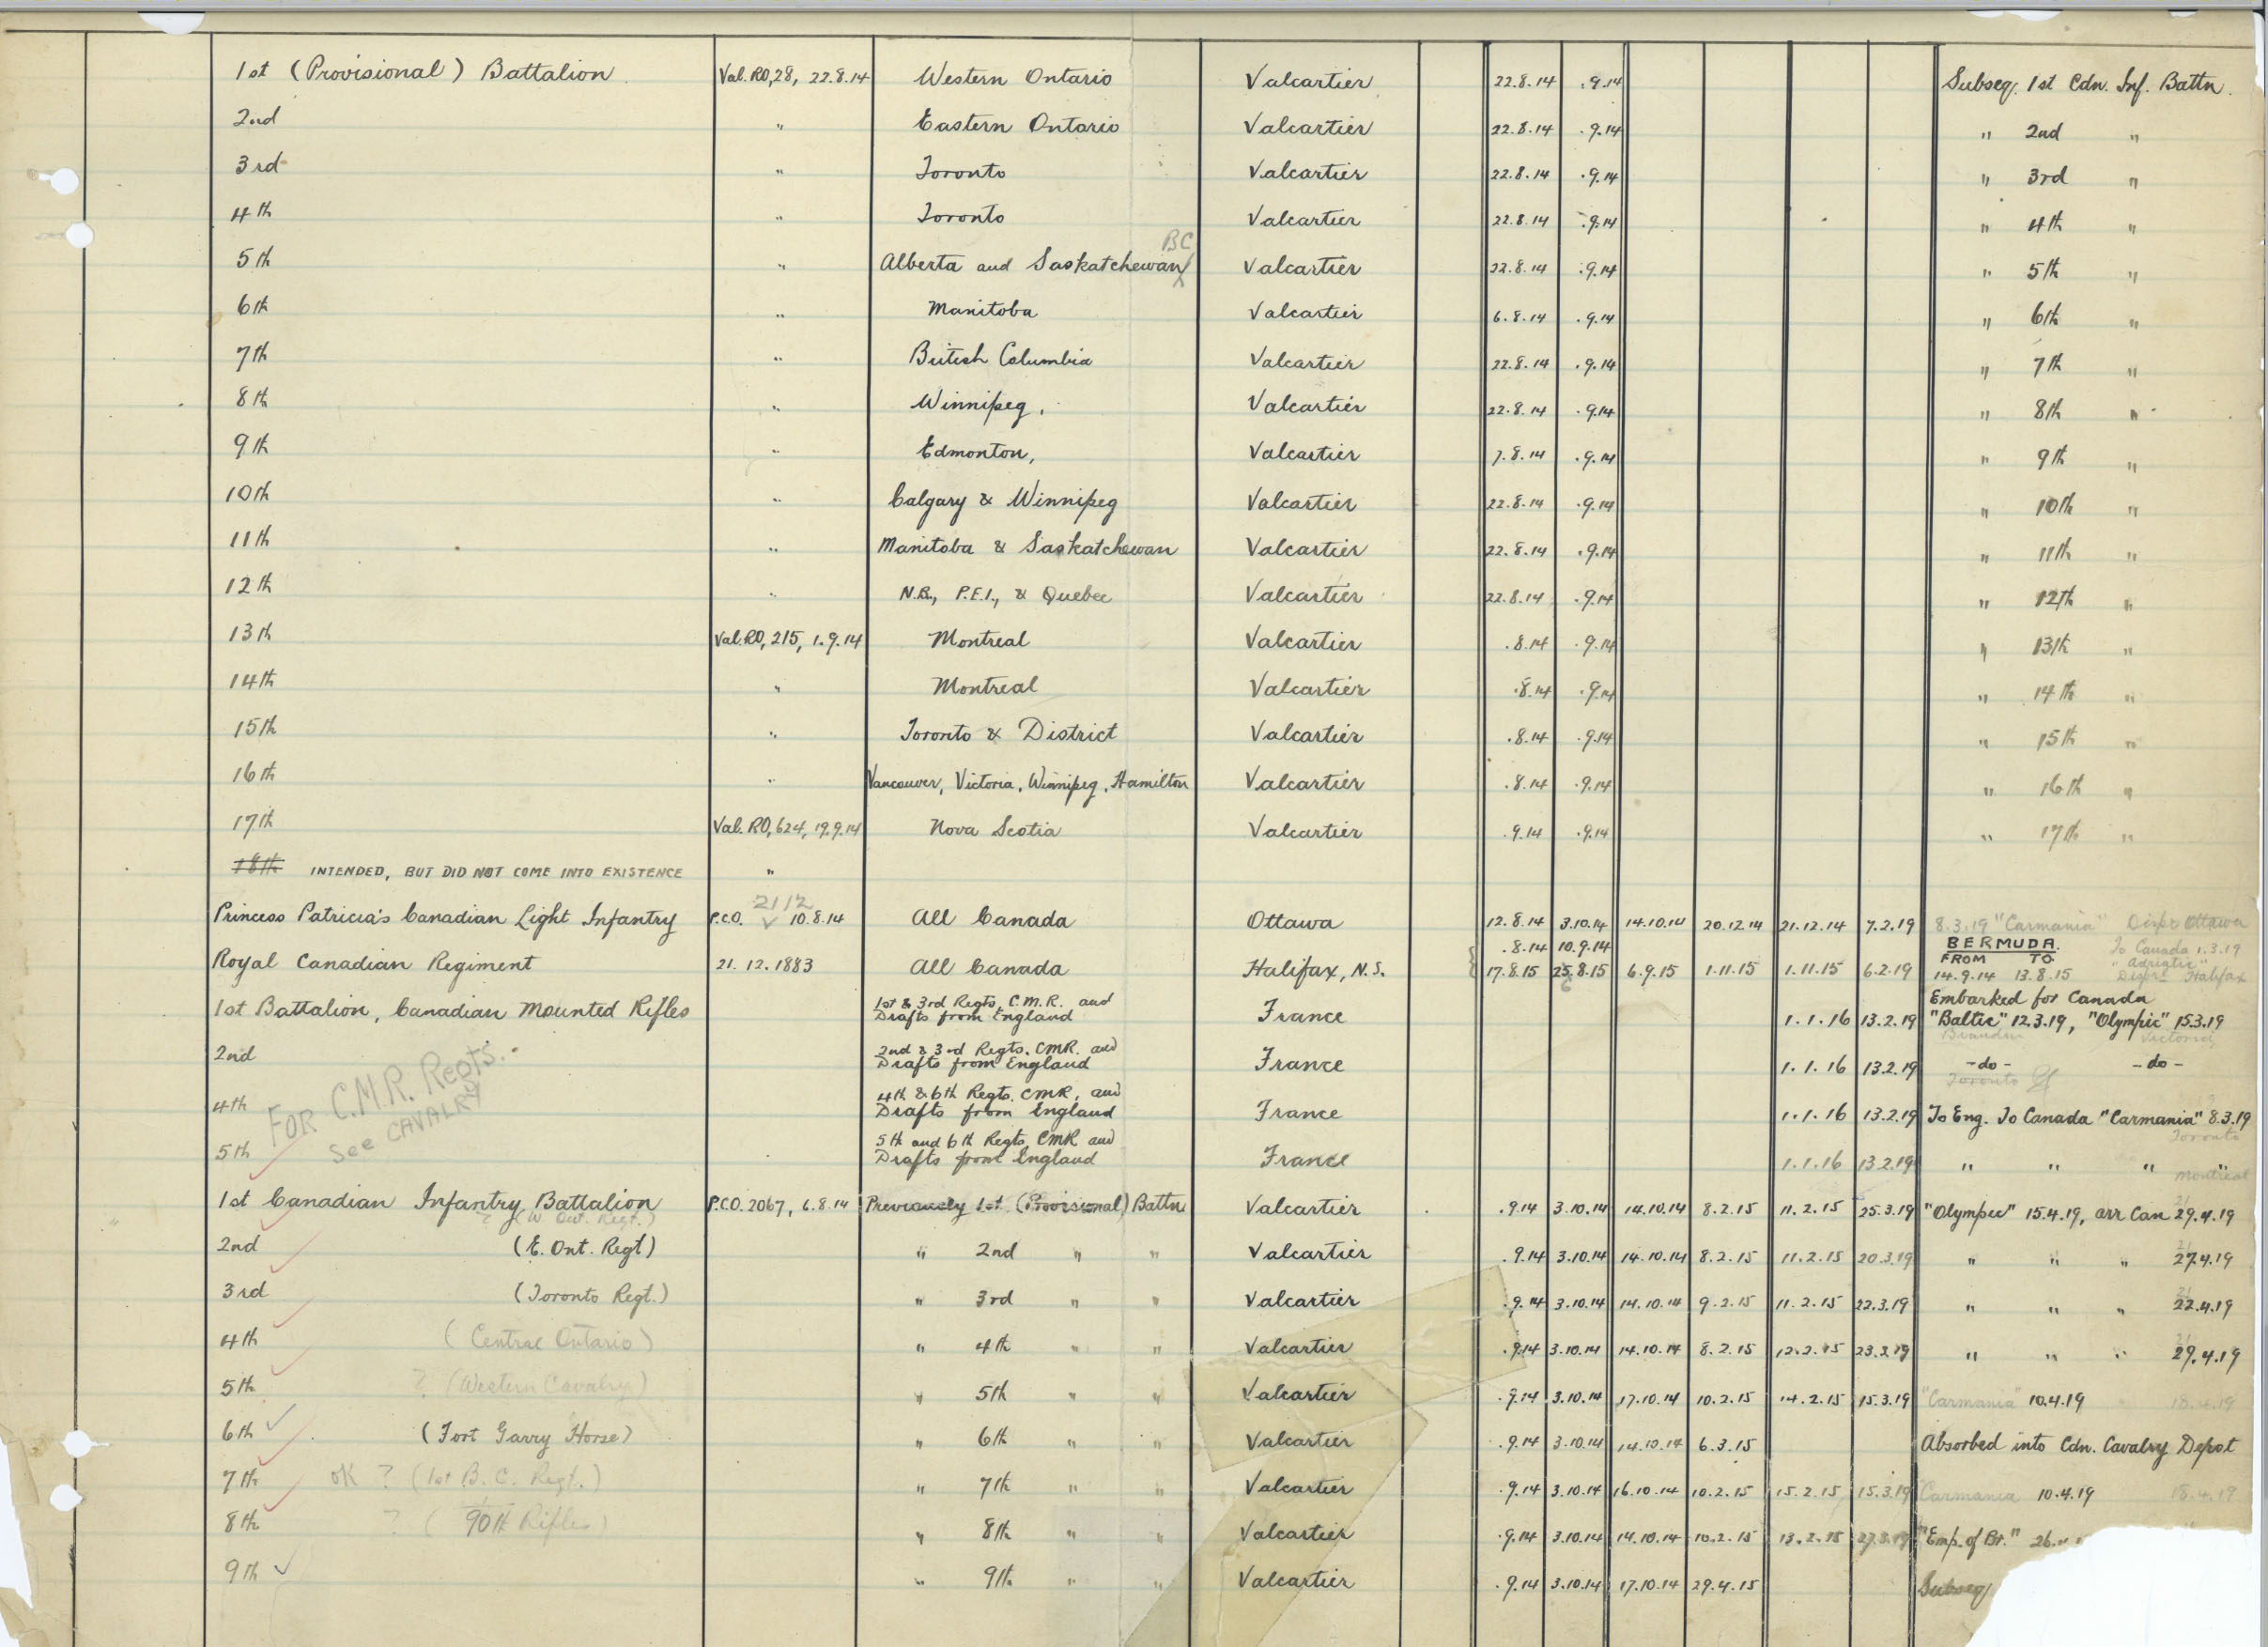 1st (Provisional) Battalion Val. RO, 28, 22.8.14 Western Ontario Valcartier 22.8.14 .9.14 Subseq. 1st Cdn. Inf. Battn.
2nd " Eastern Ontario Valcartier 22.8.14 .9.14 " 2nd "
3rd " Toronto Valcartier 22.8.14 .9.14 " 3rd "
4th " Toronto Valcartier 22.8.14 .9.14 " 4th "
BC
5th " Alberta and Saskatchewan Valcartier 22.8.14 .9.14 " 5th "
6th " Manitoba Valcartier 6.8.14 .9.14 " 6th "
7th " British Columbia Valcartier 22.8.14 .9.14 " 7th "
8th " Winnipeg, Valcartier 22.8.14 .9.14 " 8th "
9th " Edmonton, Valcartier 7.8.14 .9.14 " 9th "
10th " Calgary & Winnipeg Valcartier 22.8.14 .9.14 " 10th "
11th " Manitoba & Saskatchewan Valcartier 22.8.14 .9.14 " 11th "
12th " N.B., P.E.I., & Quebec Valcartier 22.8.14 .9.14 " 12th "
13th Val. RO, 215, 1.9.14 Montreal Valcartier .8.14 .9.14 " 13th "
14th " Montreal Valcartier .8.14 .9.14 " 14th "
15th " Toronto & District Valcartier .8.14 .9.14 " 15th "
16th " Vancouver, Victoria, Winnipeg, Hamilton Valcartier .8.14 .9.14 " 16th "
17th Val. RO, 624, 19.9.14 Nova Scotia Valcartier .9.14 .9.14 " 17th "
18th INTENDED, BUT DID NOT COME INTO EXISTENCE "
2112
Princess Patricia's Canadian Light Infantry P.C.O. ✓ 10.8.14 All Canada Ottawa 12.8.14 3.10.14 14.10.14 20.12.14 21.12.14 7.2.19 8.3.19 "Carmania" Dispr Ottawa
.8.14 10.9.14 BERMUDA. To Canada 1.3.19
FROM TO " Adriatic "
Royal Canadian Regiment 21.12.1883 All Canada Halifax, N.S. 17.8.15 25.8.15 6.9.15 1.11.15 1.11.15 6.2.19 14.9.14 13.8.15 Dispr. Halifax
6
1st & 3rd Regts, C.M.R. and Embarked for Canada
1st Battalion, Canadian Mounted Rifles Drafts from England France 1.1.16 13.2.19 "Baltic" 12.3.19, "Olympic" 15.3.19
Victoria
2nd & 3rd Regts. CMR. and
2nd Drafts from England France 1.1.16 13.2.19 -do- -do-
Toronto
4th & 6th Regts. CMR, and
4th Drafts from England France 1.1.16 13.2.19 To Eng. To Canada "Carmania" 8.3.19
Toronto
FOR C.M.R. Regts.
See CAVALRY
5th and 6th Regts CMR and
5th Drafts from England France 1.1.16 13.2.19 " " " "
Montreal
1st Canadian Infantry Battalion P.C.O. 2067, 6.8.14 Previously 1st (Provisional) Battn Valcartier .9.14 3.10.14 14.10.14 8.2.15 11.2.15 25.3.19 "Olympic" 15.4.19, arr Can 29.4.19
? (W Ont. Regt.) 21
2nd (E. Ont. Regt) " 2nd " " Valcartier .9.14 3.10.14 14.10.14 8.2.15 11.2.15 20.3.19 " " " 27.4.19
21
3rd (Toronto Regt.) " 3rd " " Valcartier .9.14 3.10.14 14.10.14 9.2.15 11.2.15 22.3.19 " " " 22.4.19
21
4th (Central Ontario) " 4th " " Valcartier .9.14 3.10.14 14.10.14 8.2.15 12.2.15 23.3.19 " " " 29.4.19
5th ? (Western Cavalry) " 5th " " Valcartier .9.14 3.10.14 17.10.14 10.2.15 14.2.15 15.3.19 "Carmania" 10.4.19 18.4.19
6th ✓ (Fort Garry Horse) " 6th " " Valcartier .9.14 3.10.14 14.10.14 6.3.15 Absorbed into Cdn. Cavalry Depot
7th OK ? (1st B.C. Regt.) " 7th " " Valcartier .9.14 3.10.14 16.10.14 10.2.15 15.2.15 15.3.19 Carmania 10.4.19 18.4.19
8th ? (90th Rifles) " 8th " " Valcartier .9.14 3.10.14 14.10.14 10.2.15 13.2.15 27.3.19 "Emp. of Br." 26.
9th ✓ " 9th " " Valcartier .9.14 3.10.14 17.10.14 29.4.15 Subseq